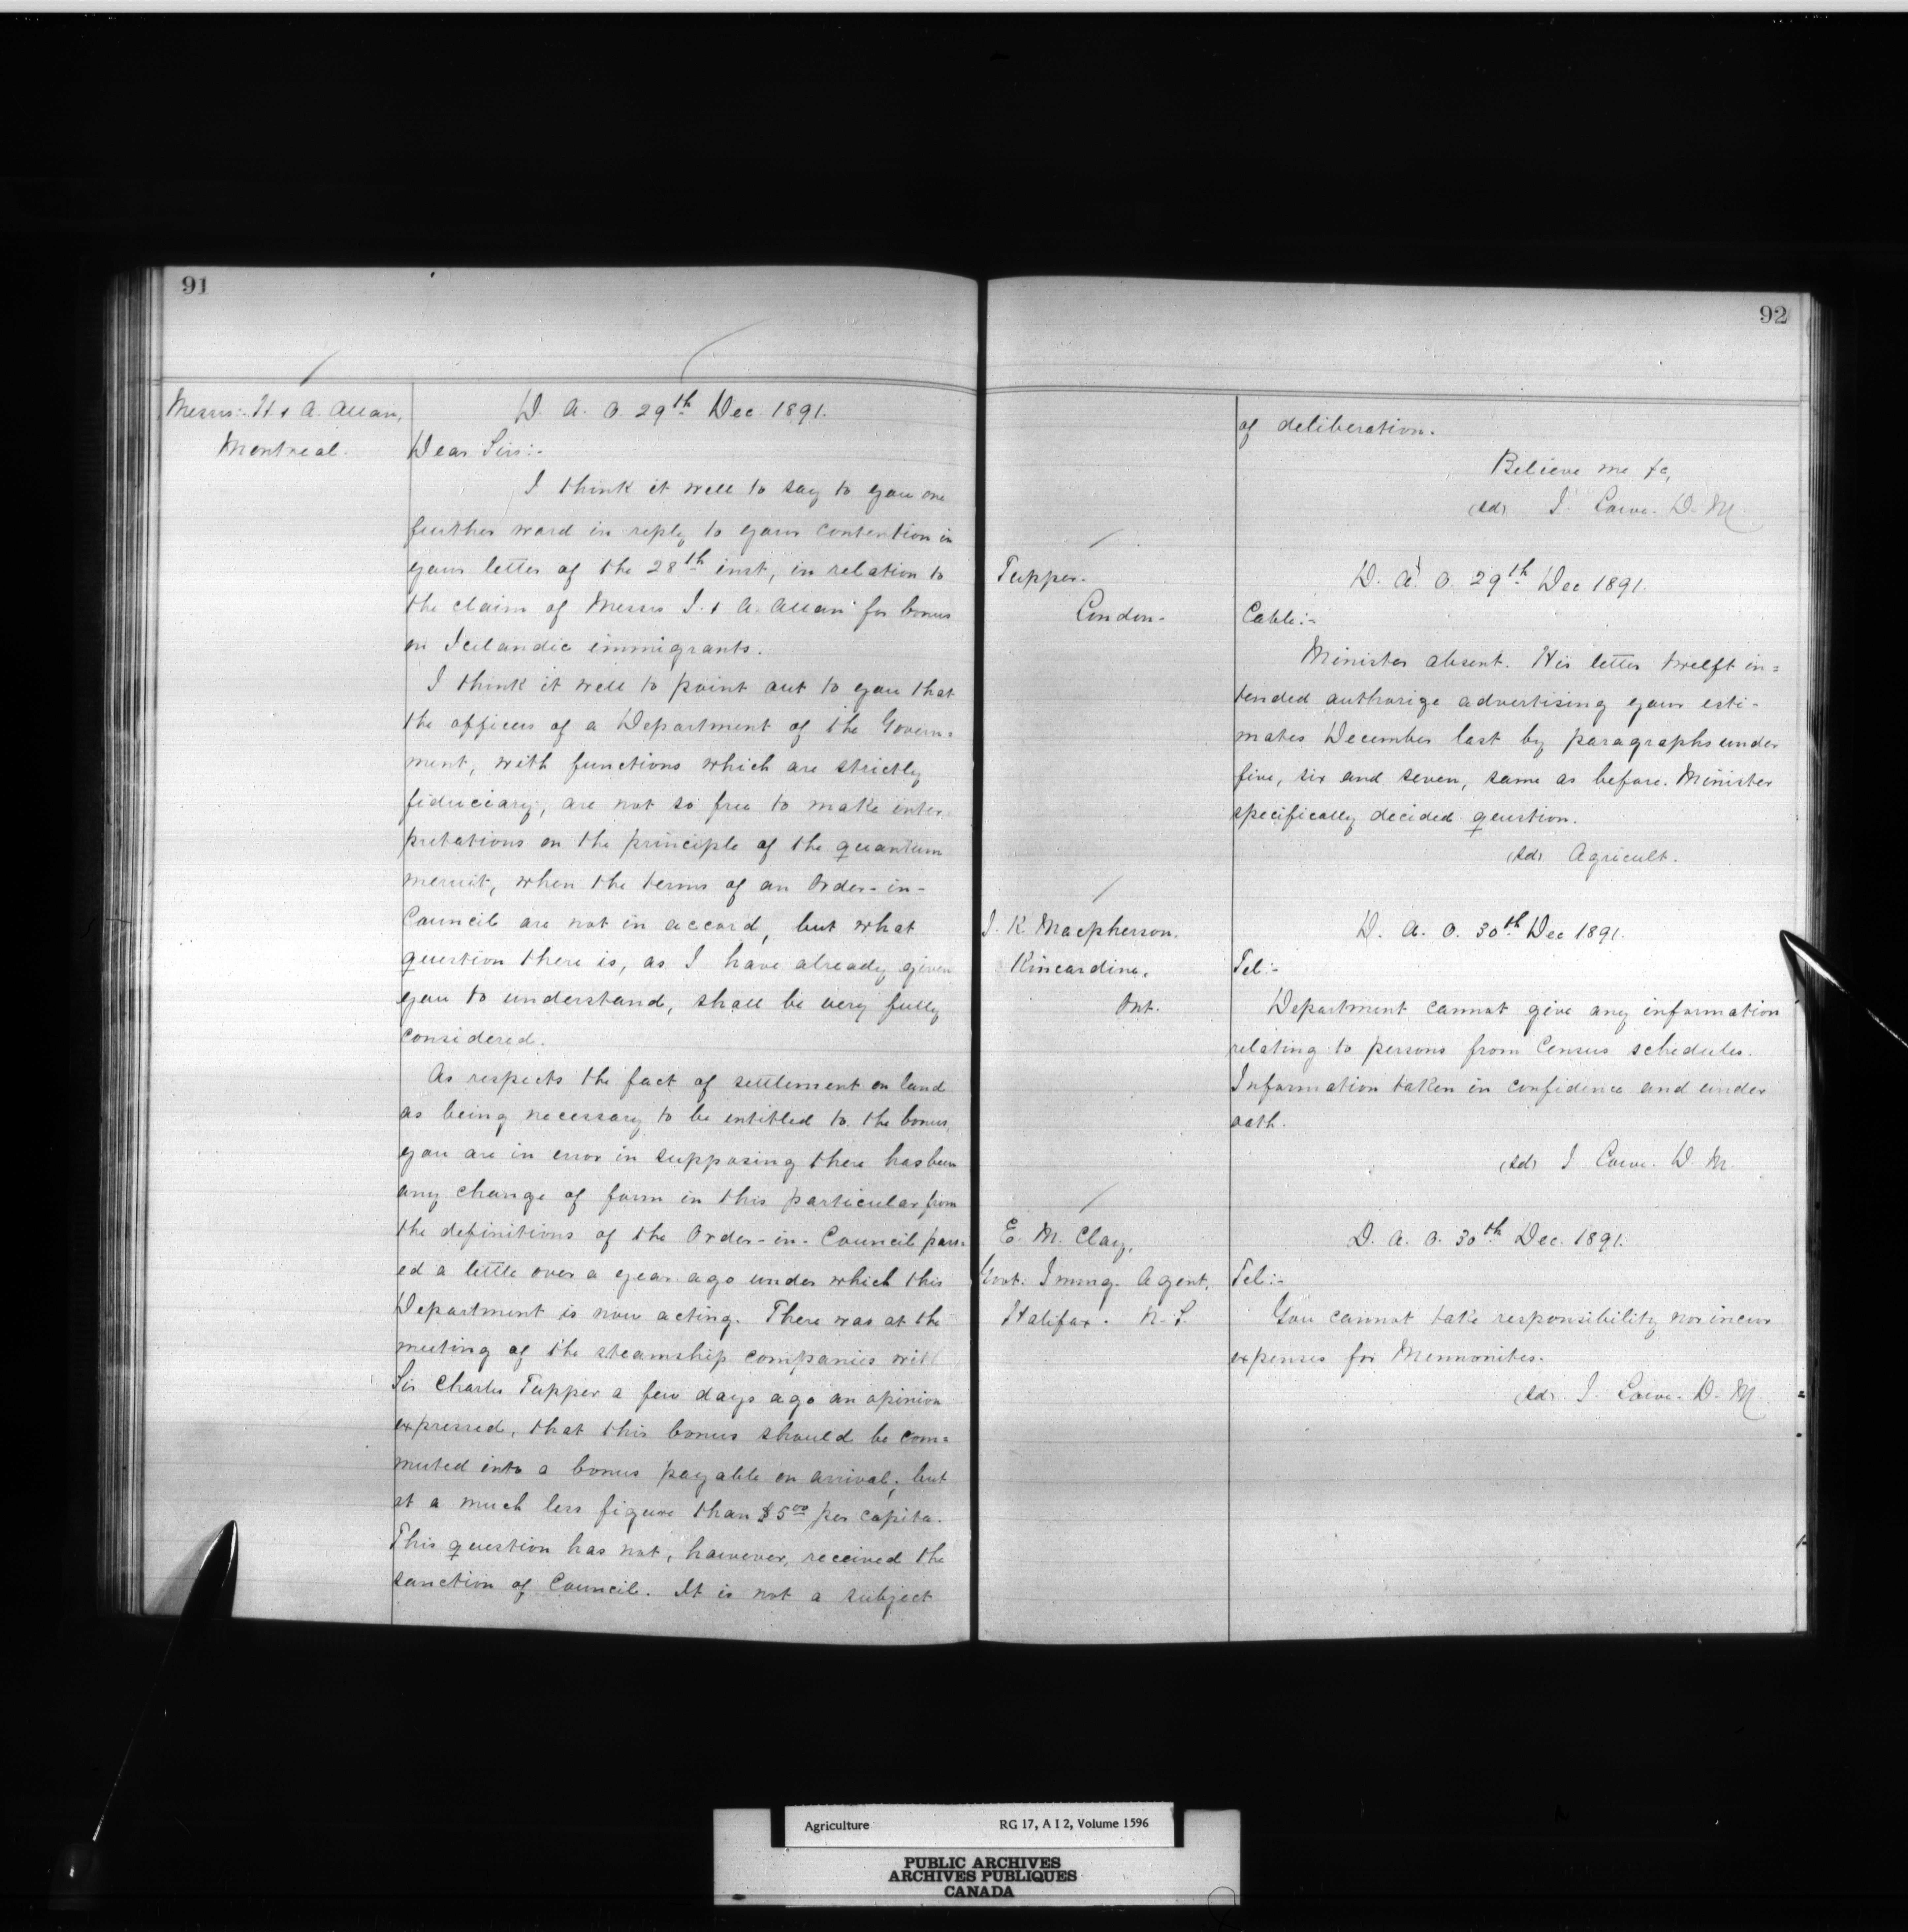 91
Messrs:- H & A. Allan,
Montreal.
D. A. O. 29th Dec. 1891.
Dear Sirs:-
I think it well to say to you one
further word in reply to your contention in
your letter of the 28th inst, in relation to
the claim of Messrs J. & A. Allan for bonus
on Icelandic immigrants.
I think it well to point out to you that
the officers of a Department of the Govern=
ment, with functions which are strictly
fiduciary, are not so free to make inter
pretations on the principle of the quantum
meruit, when the terms of an Order-in-
Council are not in accord, but what
question there is, as I have already given
you to understand, shall be very fully
considered.
As respects the fact of settlement on land
as being necessary to be entitled to the bonus,
you are in error in supposing there has been
any change of form in this particular from
the definitions of the Order-in-Council pass=
ed a little over a year ago under which this
Department is now acting. There was at the
meeting of the steamship companies with
Sir Charles Tupper a few days ago an opinion
expressed, that this bonus should be com=
muted into a bonus payable on arrival, but
at a much less figure than $5.00 per capita.
This question has not, however, received the
sanction of Council. It is not a subject
92
of deliberation.
Believe me &c,
(sd) J. Lowe. D. M.
Tupper.
London-
D. A. O. 29th Dec 1891.
Cable:-
Minister absent. His letter twelft in=
tended authorize advertising your esti-
mates December last by paragraphs under
five, six and seven, same as before. Minister
specifically decided question.
(sd) Agricult.
J. K. Macpherson.
Kincardine,
Ont.
D. A. O. 30th Dec 1891.
Tel:-
Department cannot give any information
relating to persons from Census schedules.
Information taken in confidence and under
oath.
(sd) J Lowe. D. M.
E. M. Clay,
Govt. Immg. Agent,
Halifax. N.S.
D. A. O. 30th Dec. 1891.
Tel:-
You cannot take responsibility nor incur
expenses for Mennonites.
(sd) J. Lowe. D. M.
Agriculture RG 17, A I 2, Volume 1596
PUBLIC ARCHIVES
ARCHIVES PUBLIQUES
CANADA